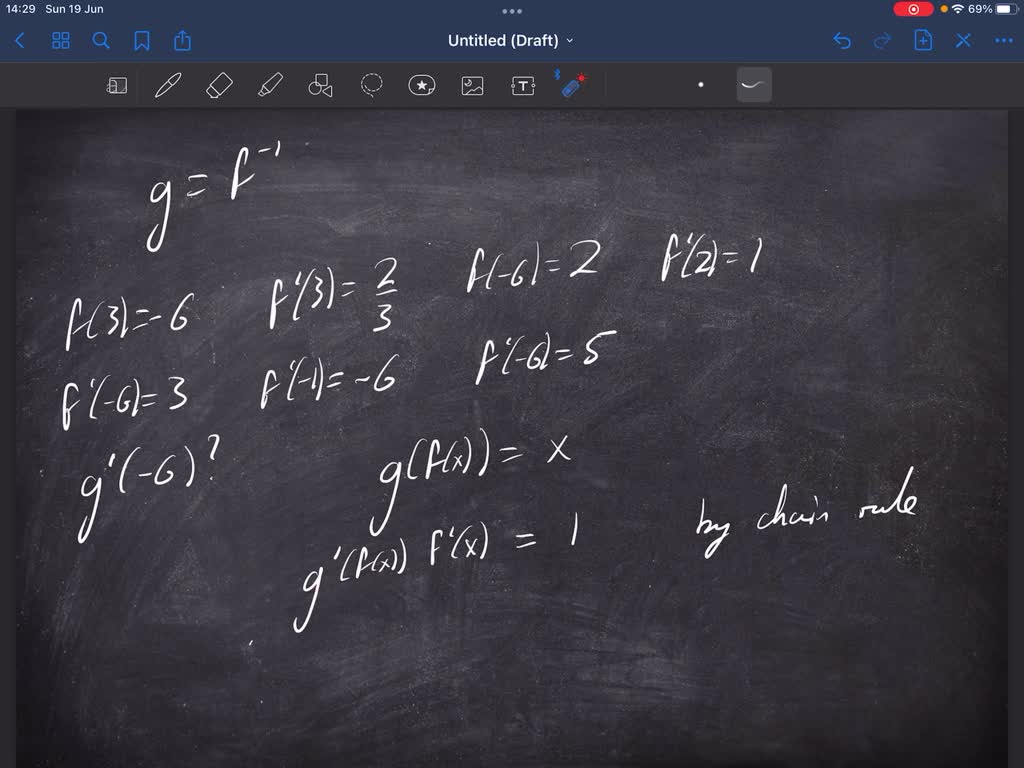 14:29 Sun 19 Jun 69%
Untitled (Draft)
T
g = f⁻¹
f(3)=-6 f'(3)=2/3 f(-6)=2 f'(2)=1
f'(-6)=3 f'(-1)=-6 f'(-6)=5
g'(-6)? g(f(x)) = x
g'(f(x)) f'(x) = 1 by chain rule